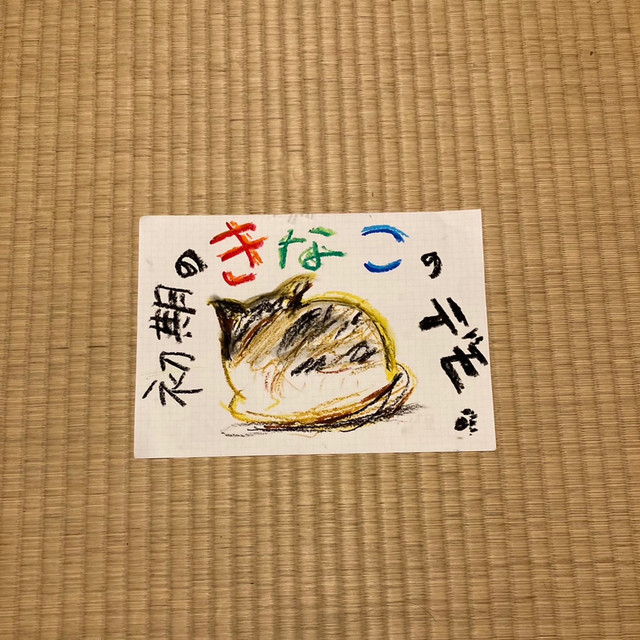 初期の
きなこの
デモ